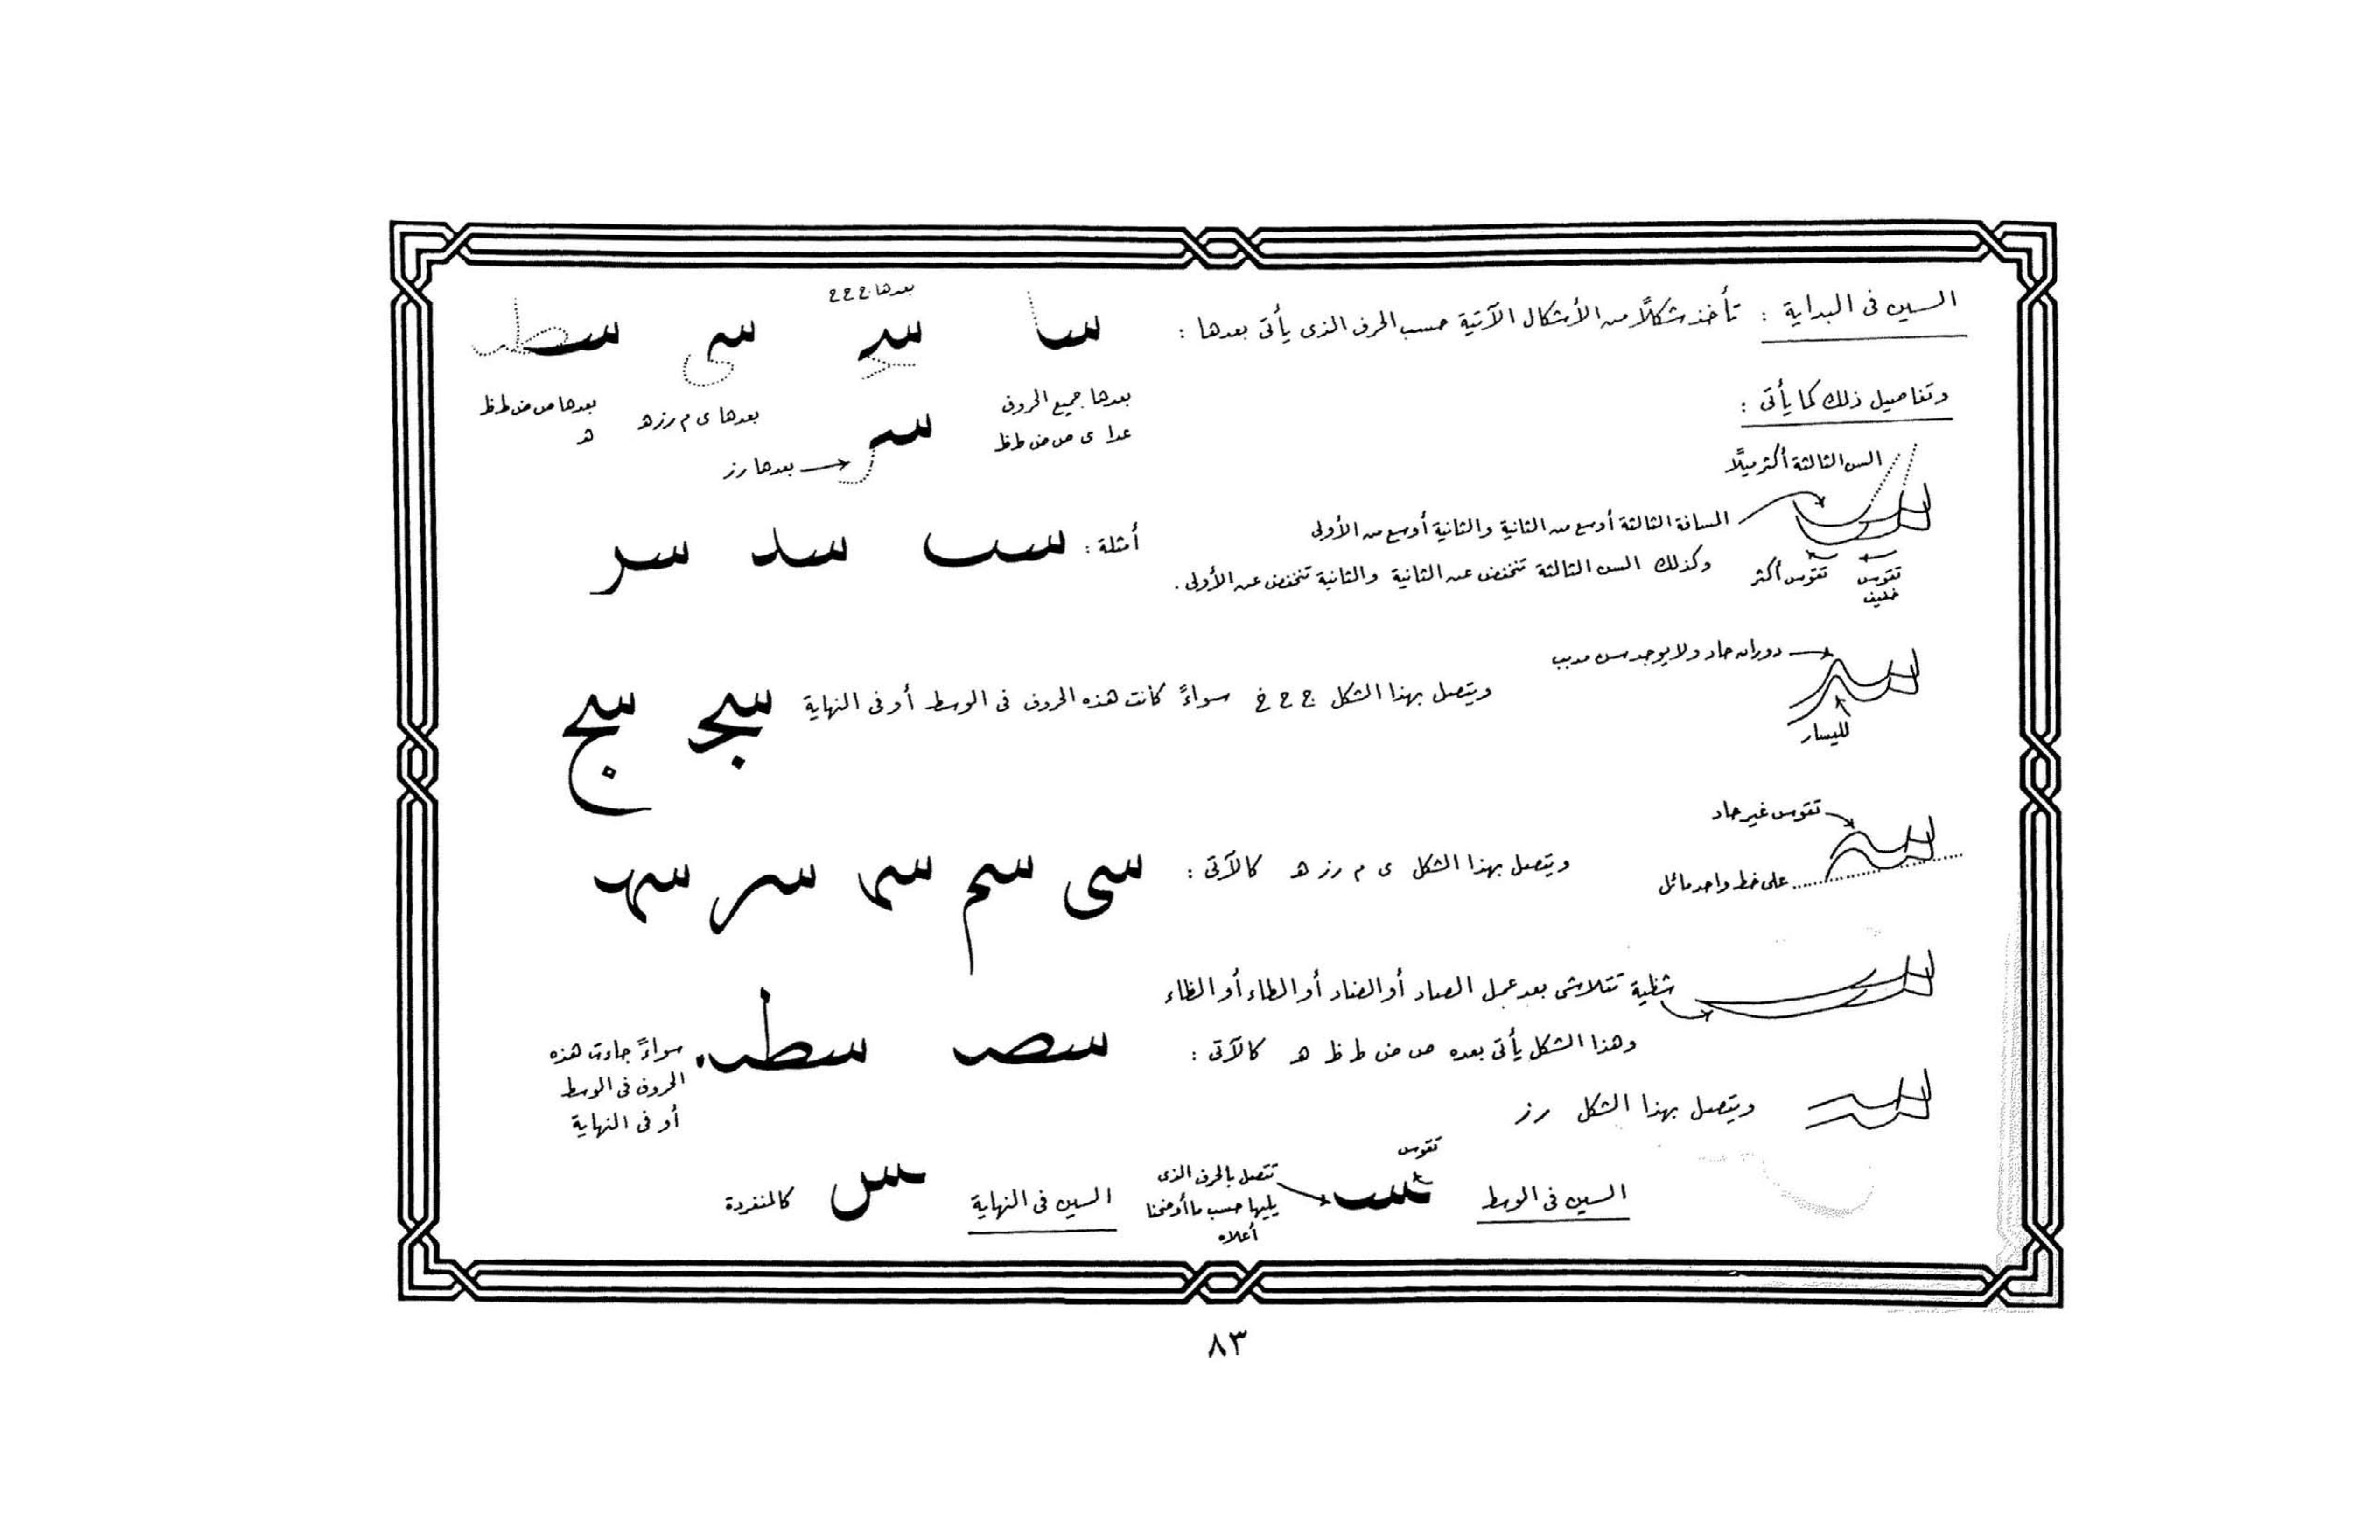 السين فى البداية : تأخذ شكلاً من الأشكال الآتية حسب الحرف الذى يأتى بعدها :
سا
بعدها جميع الحروف
عدا ى ص ض ط ظ
بعدها ج ح خ
سـ
بعدها رز
سى
بعدها ى م رز ه
سط
بعدها ص ض ط ظ
ه
وتفاصيل ذلك كما يأتى :
السن الثالثة أكثر ميلاً
المسافة الثالثة أوسع من الثانية والثانية أوسع من الأولى
وكذلك السن الثالثة تنخفض عن الثانية والثانية تنخفض عن الأولى .
تقوس خفيف
تقوس أكثر
أمثلة : سب سد سر
دوران حاد ولا يوجد سن مدبب
لليسار
ويتصل بهذا الشكل ج ح خ سواءً كانت هذه الحروف فى الوسط أو فى النهاية
سجـ سج
تقوس غير حاد
على خط واحد مائل
ويتصل بهذا الشكل ى م رز ه كالآتى :
سى سم سمـ سر سهـ
شظية تتلاشى بعد عمل الصاد أو الضاد أو الطاء أو الظاء
وهذا الشكل يأتى بعده ص ض ط ظ ه كالآتى :
سصـ سطـ
سواءً جاءت هذه
الحروف فى الوسط
أو فى النهاية
ويتصل بهذا الشكل رز
السين فى الوسط
تقوس
ـسـ
تتصل بالحرف الذى
يليها حسب ما أوضحنا
أعلاه
السين فى النهاية
ـس
كالمنفردة
٨٣